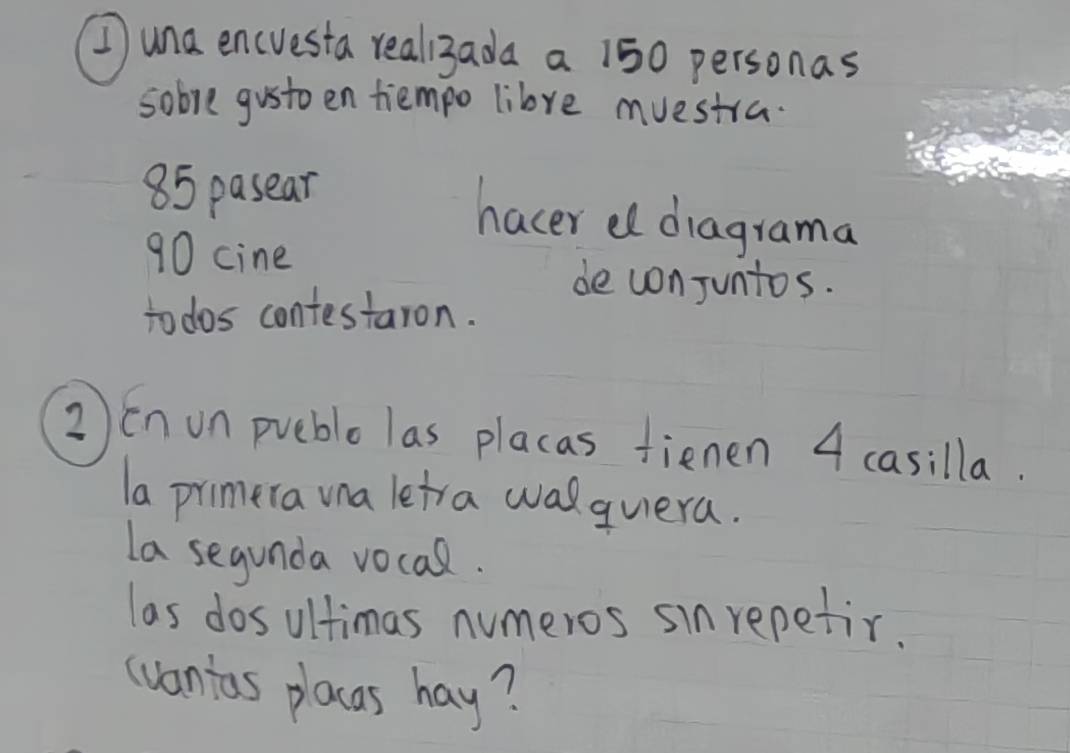 ① una encuesta realizada a 150 personas
sobre gusto en tiempo libre muestra.
85 pasear
90 cine
todos contestaron.
hacer el diagrama
de conjuntos.
② En un pueblo las placas tienen 4 casilla.
la primera una letra cualquiera.
la segunda vocal.
las dos ultimas numeros sin repetir.
cuantas placas hay?